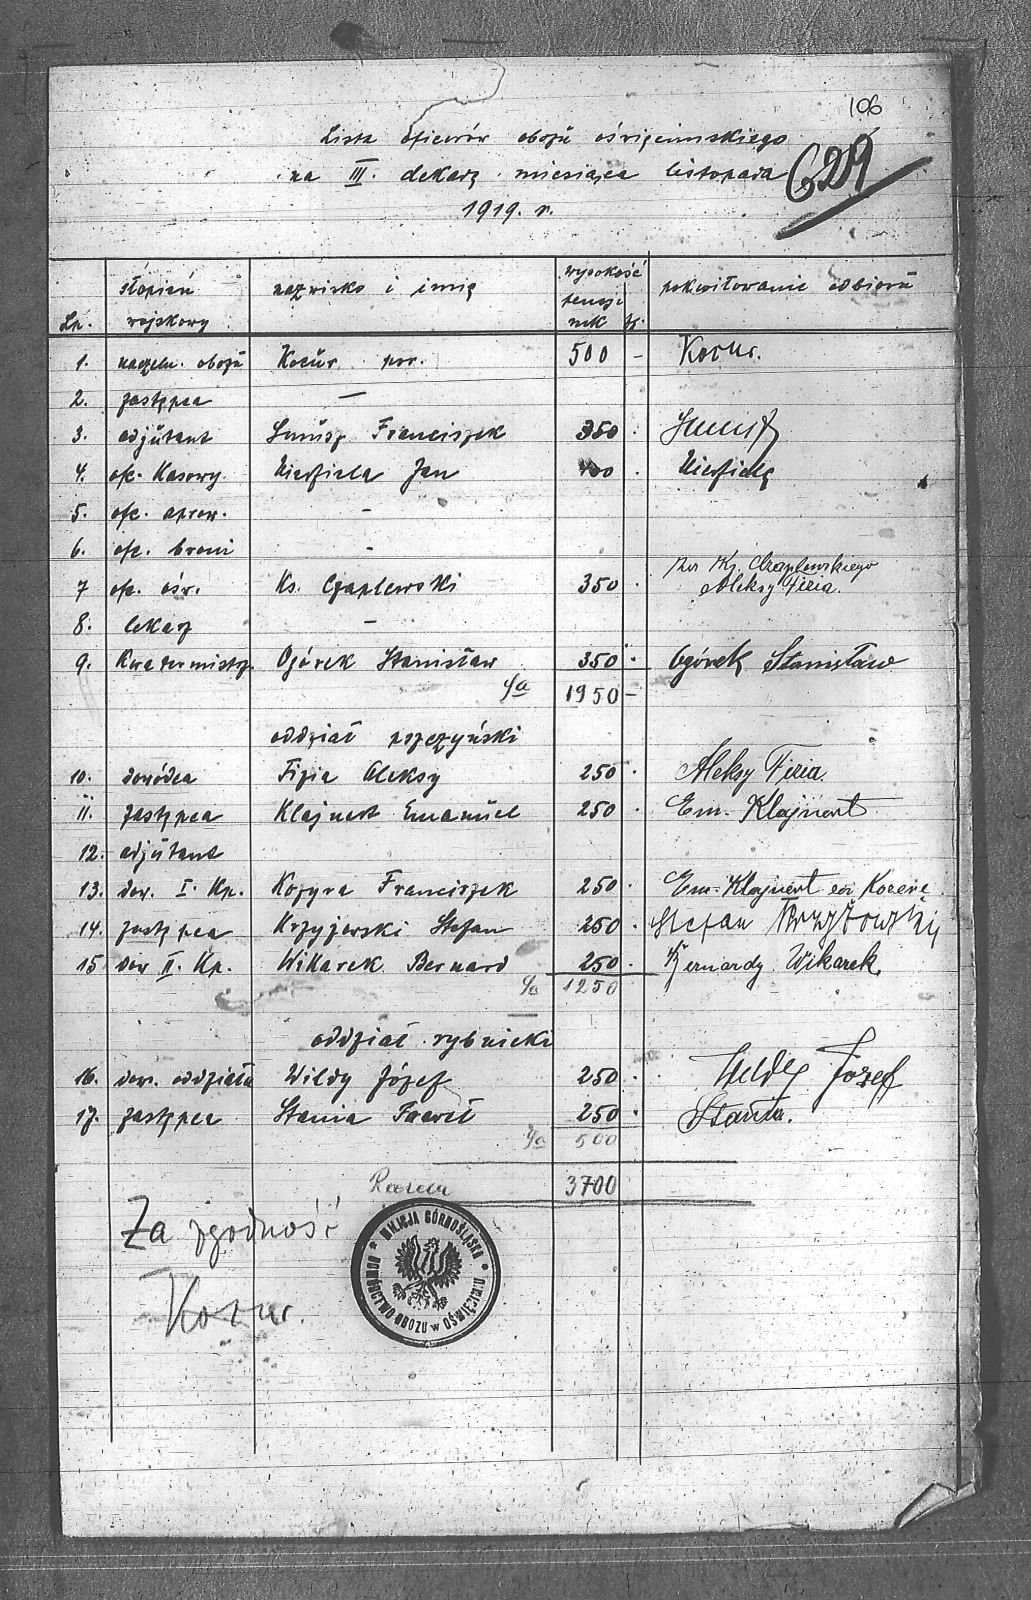 106
Lista oficerów obozu oświęcimskiego
na III. dekadę miesiąca listopada
629
1919. r.
Lp. stopień wojskowy nazwisko i imię wysokość pensji mk f. pokwitowanie odbioru
1. naczeln. obozu Kocur por. 500 - Kocur.
2. zastępca —
3. adjutant Janusz Franciszek 350 .
4. of. Kasowy. Niesfiela Jan .
5. of. aprow. -
6. of. broni -
7 of. ośw. Ks. Czaplewski 350 . Ks. Czaplewskiego
Aleksy Fizia.
8. lekarz -
9. Kwatermistrz. Ogórek Stanisław 350 . Ogórek Stanisław
Sa 1950 -
oddział pszczyński
10. dowódca Fizia Aleksy 250 . Aleksy Fizia.
11. zastępca Klajnert Emanuel 250 . Em. Klajnert
12. adjutant
13. dow. I. Kp. Kozyra Franciszek 250 . Em. Klajnert
14. zastępca Krzyżowski Stefan 250 . Stefan Krzyżowski
15 dow II. Kp. Wikarek Bernard 250 . Bernardy Wikarek.
Sa 1250
oddział rybnicki
16. dow. oddziału Wildy Józef 250 . Wildy Józef
17. zastępca Stania Paweł 250 . Stania.
Sa 500
Razem 3700
Za zgodność
Kocur.
MILICJA GÓRNOŚLĄSKA
DOWÓDZTWO OBOZU w OŚWIĘCIMIU